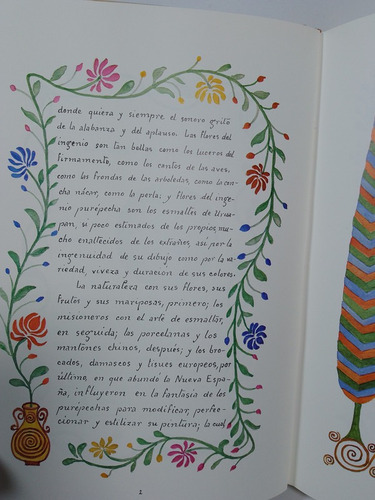 donde quiera y siempre el sonoro grito
de la alabanza y del aplauso. Las flores del
ingenio son tan bellas como los luceros del
firmamento, como los cantos de las aves,
como las frondas de las arboledas, como la con-
cha nácar, como la perla; y flores del inge-
nio purépecha son los esmaltes de Urua-
pan, si poco estimados de los propios, mu-
cho enaltecidos de los extraños, así por la
ingenuidad de su dibujo como por la va-
riedad, viveza y duración de sus colores.
La naturaleza con sus flores, sus
frutos y sus mariposas, primero; los
misioneros con el arte de esmaltar,
en seguida; las porcelanas y los
mantones chinos, después; y los bro-
cados, damascos y tisues europeos, por
último, en que abundó la Nueva Espa-
ña, influyeron en la fantasía de los
purépechas para modificar, perfec-
cionar y estilizar su pintura; la cual